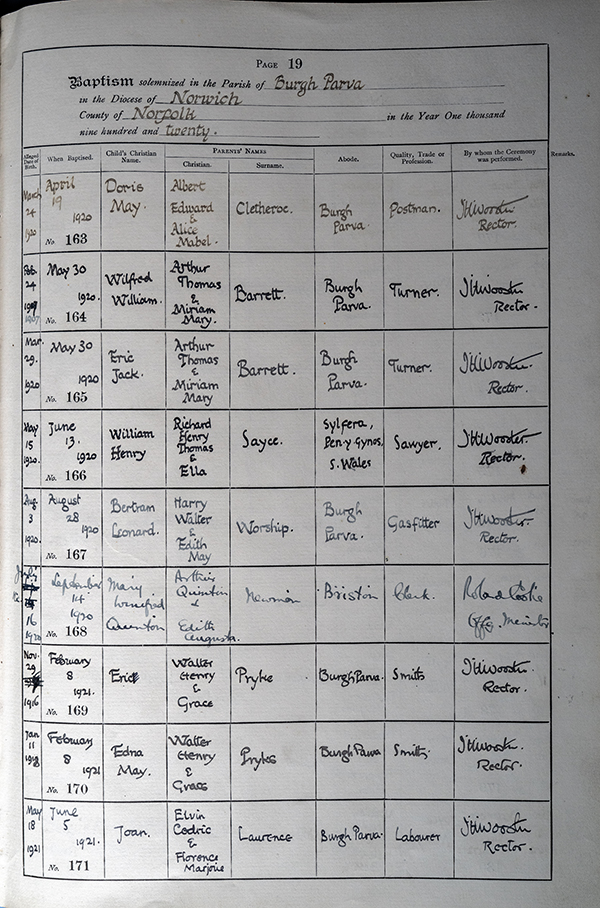 PAGE 19
Baptism solemnized in the Parish of Burgh Parva
in the Diocese of Norwich
County of Norfolk in the Year One thousand
nine hundred and twenty.
Alleged Date of Birth. When Baptised. Child's Christian Name. PARENTS' NAMES Christian. Surname. Abode. Quality, Trade or Profession. By whom the Ceremony was performed. Remarks.
March 24 1920 April 19 1920 No. 163 Doris May. Albert Edward & Alice Mabel. Cletheroe. Burgh Parva. Postman. Rector.
Feb. 24 1907 May 30 1920. No. 164 Wilfred William. Arthur Thomas & Miriam Mary. Barrett. Burgh Parva. Turner. Rector.
Mar. 29. 1920 May 30 1920 No. 165 Eric Jack. Arthur Thomas & Miriam Mary Barrett. Burgh Parva. Turner. Rector.
May 15 1920. June 13. 1920 No. 166 William Henry Richard Henry Thomas & Ella Sayce. S. Wales Sawyer. Rector.
Aug. 3 1920. August 28 1920 No. 167 Bertram Leonard. Harry Walter & Edith May Worship. Burgh Parva. Gasfitter Rector.
16 1920 September 14 1920 No. 168 Mary Winifred Quinton Arthur Quinton & Edith Augusta. Newman Briston Clerk. Roland Cooke Offg. Minister
Nov. 29 1916 February 8 1921. No. 169 Eric Walter Henry & Grace Pryke Burgh Parva. Smith Rector.
Jan 11 1918 February 8 1921 No. 170 Edna May. Walter Henry & Grace Pryke Burgh Parva Smith. Rector.
May 18 1921 June 5 1921. No. 171 Joan. Elvin Cedric & Florence Marjorie Laurence Burgh Parva. Labourer Rector.